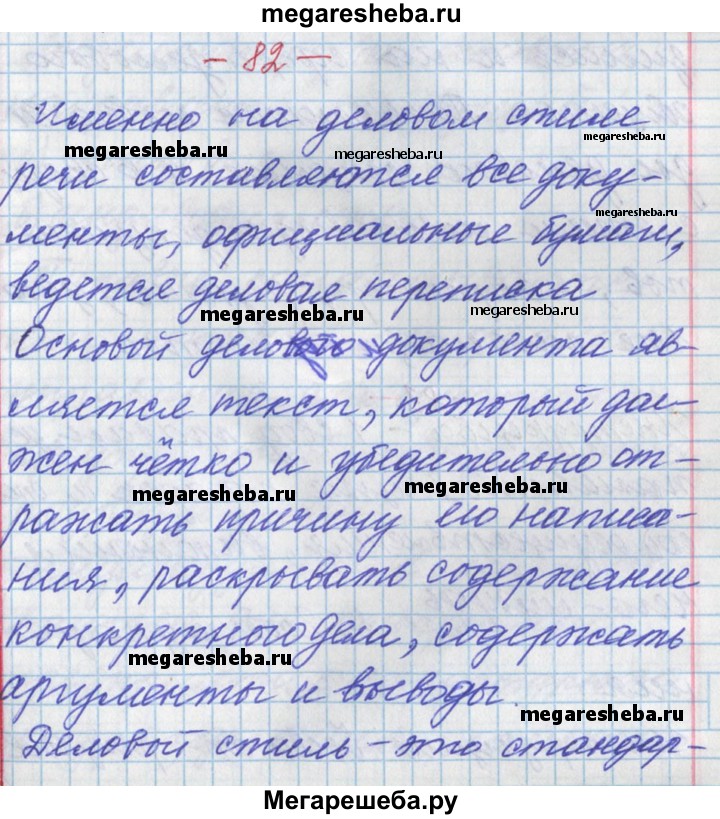 megaresheba.ru
- 82 -
Именно на деловом стиле
megaresheba.ru
megaresheba.ru
megaresheba.ru
речи составляются все доку-
megaresheba.ru
менты, официальные бумаги,
ведется деловая переписка.
megaresheba.ru
megaresheba.ru
Основой делового документа яв-
ляется текст, который дол-
жен чётко и убедительно от-
megaresheba.ru
megaresheba.ru
ражать причину его написа-
ния, раскрывать содержание
конкретного дела, содержать
megaresheba.ru
аргументы и выводы.
megaresheba.ru
Деловой стиль - это стандар-
Мегарешеба.ру